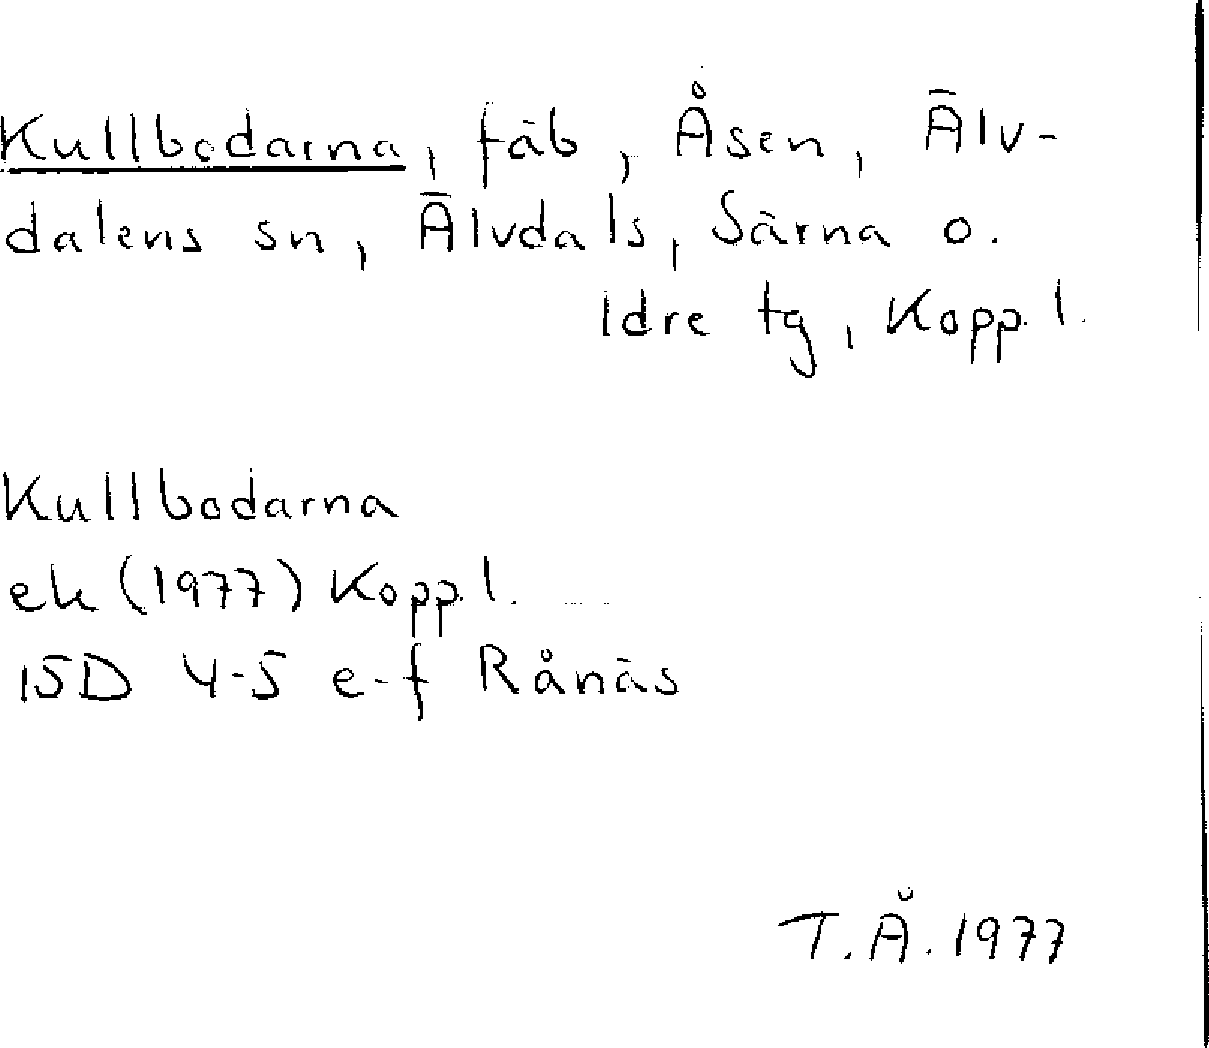 Kullbodarna, fäb, Åsen, Älv-
dalens sn, Älvdals, Särna o.
Idre tg, Kopp. l.
Kullbodarna
ek (1977) Kopp. l.
15D 4-5 e-f Rånäs
T.Å. 1977